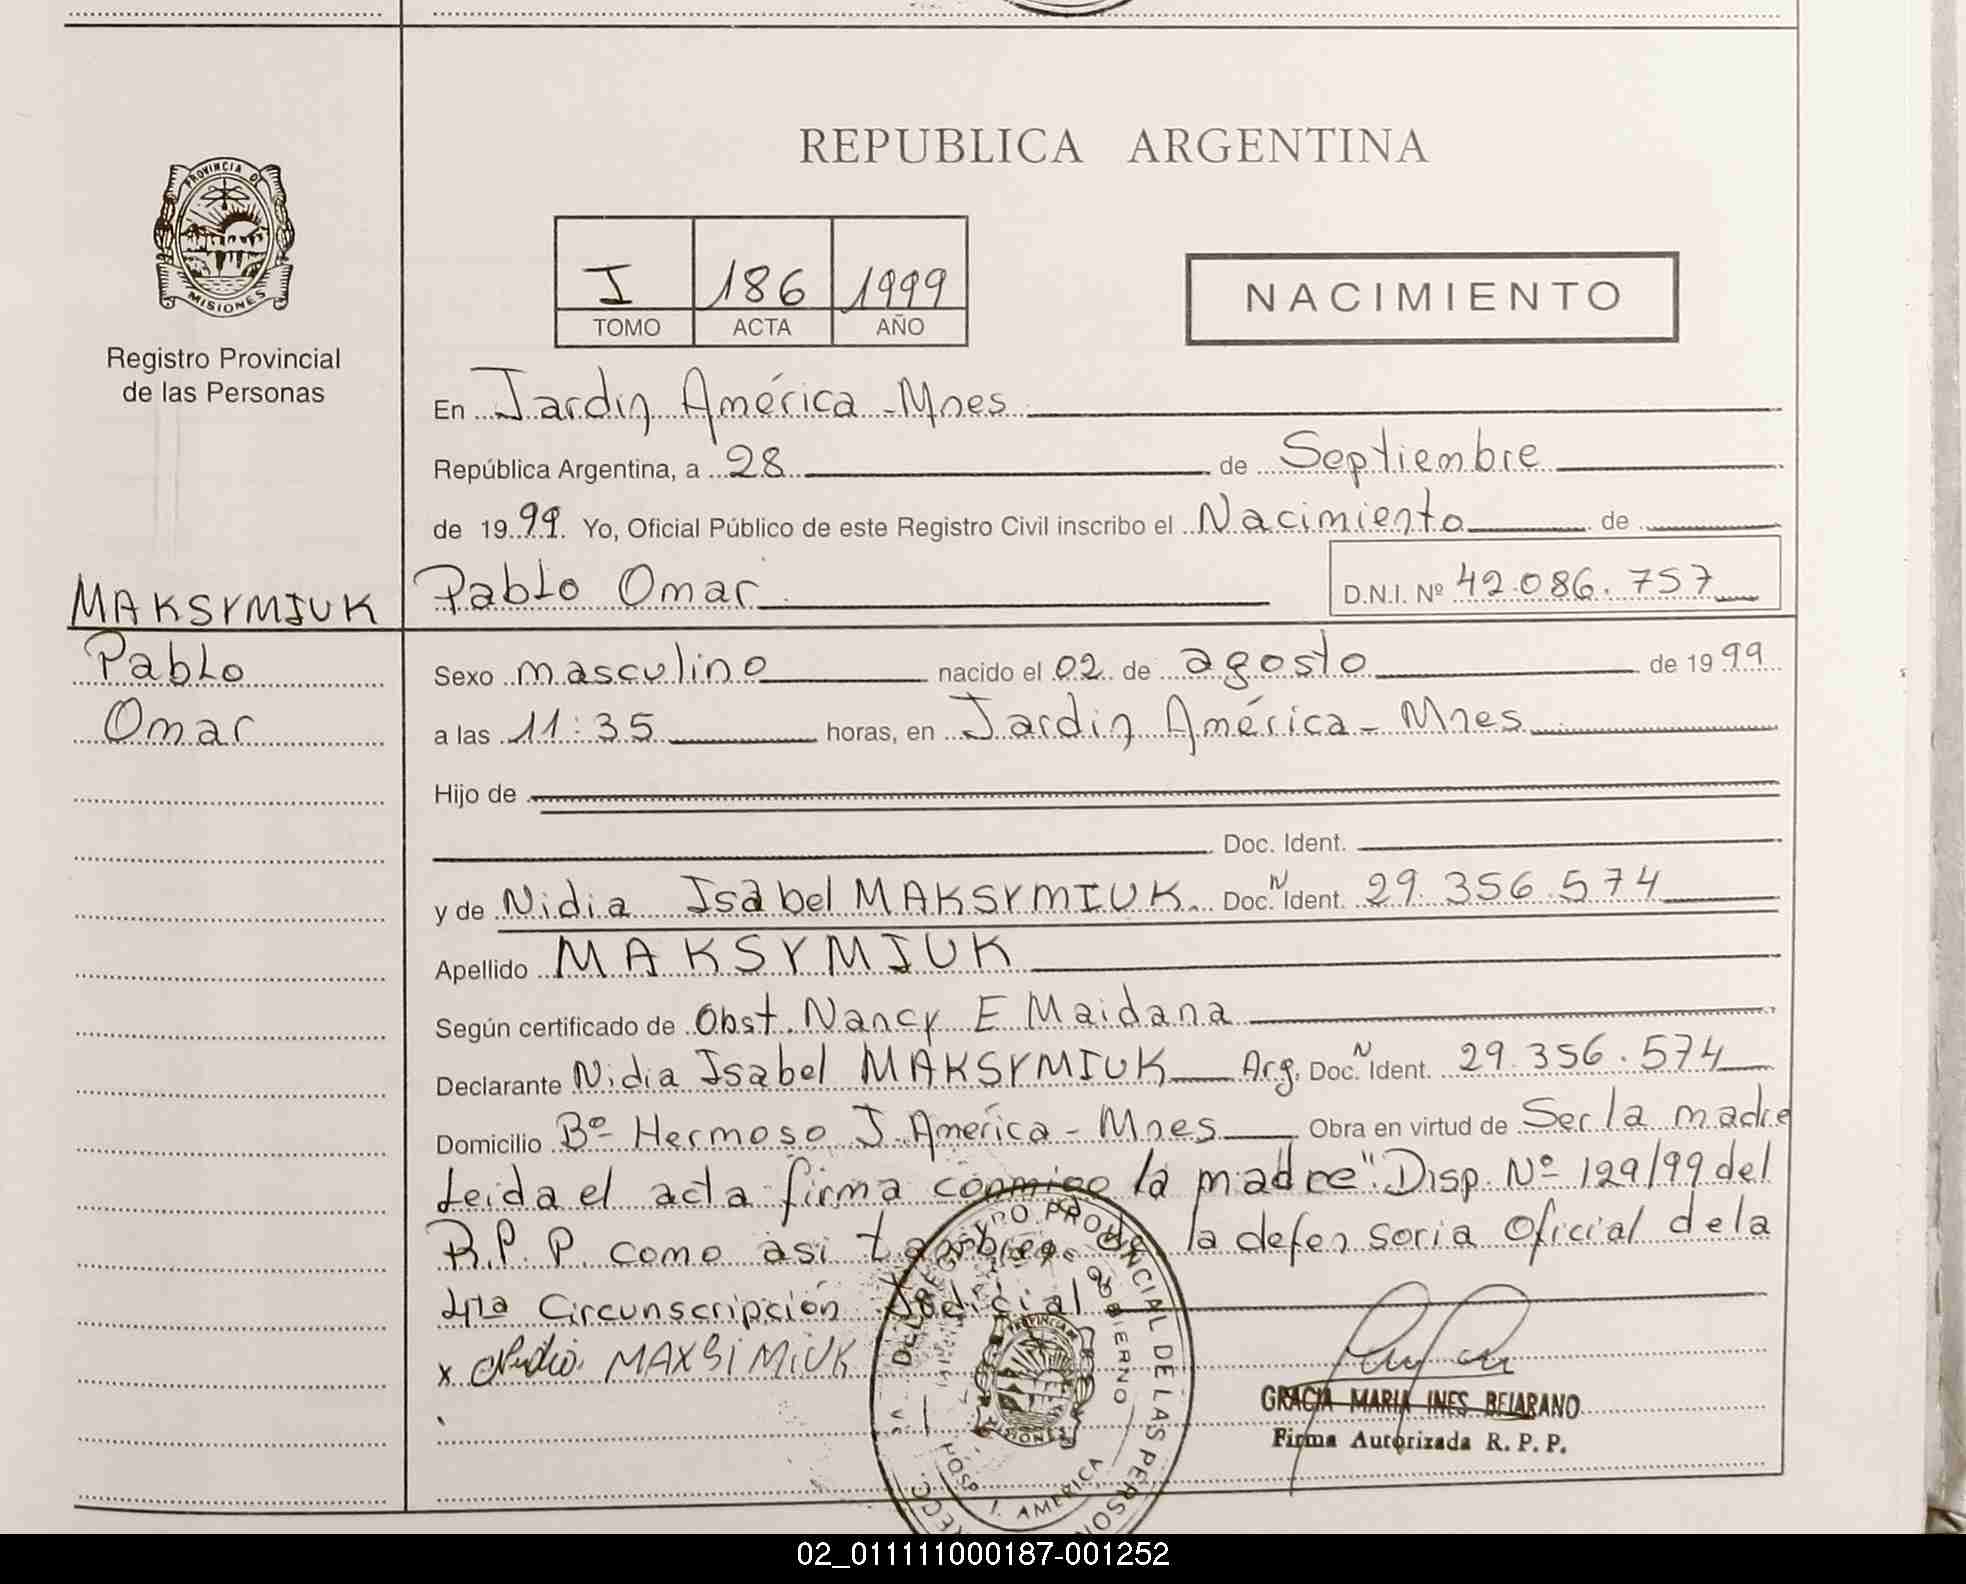 REPUBLICA ARGENTINA
PROVINCIA DE
MISIONES
Registro Provincial
de las Personas
I 186 1999
TOMO ACTA AÑO
NACIMIENTO
En Jardin América - Mnes
República Argentina, a 28 de Septiembre
de 1999. Yo, Oficial Público de este Registro Civil inscribo el Nacimiento de
MAKSYMIUK
Pablo
Omar
Pablo Omar D.N.I. Nº 42.086.757
Sexo masculino nacido el 02 de agosto de 1999
a las 11:35 horas, en Jardin América - Mnes
Hijo de
Doc. Ident.
y de Nidia Isabel MAKSYMIUK. Doc. N Ident. 29.356.574
Apellido MAKSYMIUK
Según certificado de Obst. Nancy E Maidana
Declarante Nidia Isabel MAKSYMIUK Arg. Doc. N Ident. 29.356.574
Domicilio Bº Hermoso J. América - Mnes Obra en virtud de Ser la madre
Leida el acta firma conmigo la madre". Disp. Nº 129/99 del
R.P.P. como asi tambien de la defensoria Oficial de la
4ta Circunscripción Judicial
x Nidia MAXSIMIUK
REGISTRO PROVINCIAL DE LAS PERSONAS
GOBIERNO
HOSP. J. AMERICA
GRACIA MARIA INES BEJARANO
Firma Autorizada R. P. P.
02_011111000187-001252